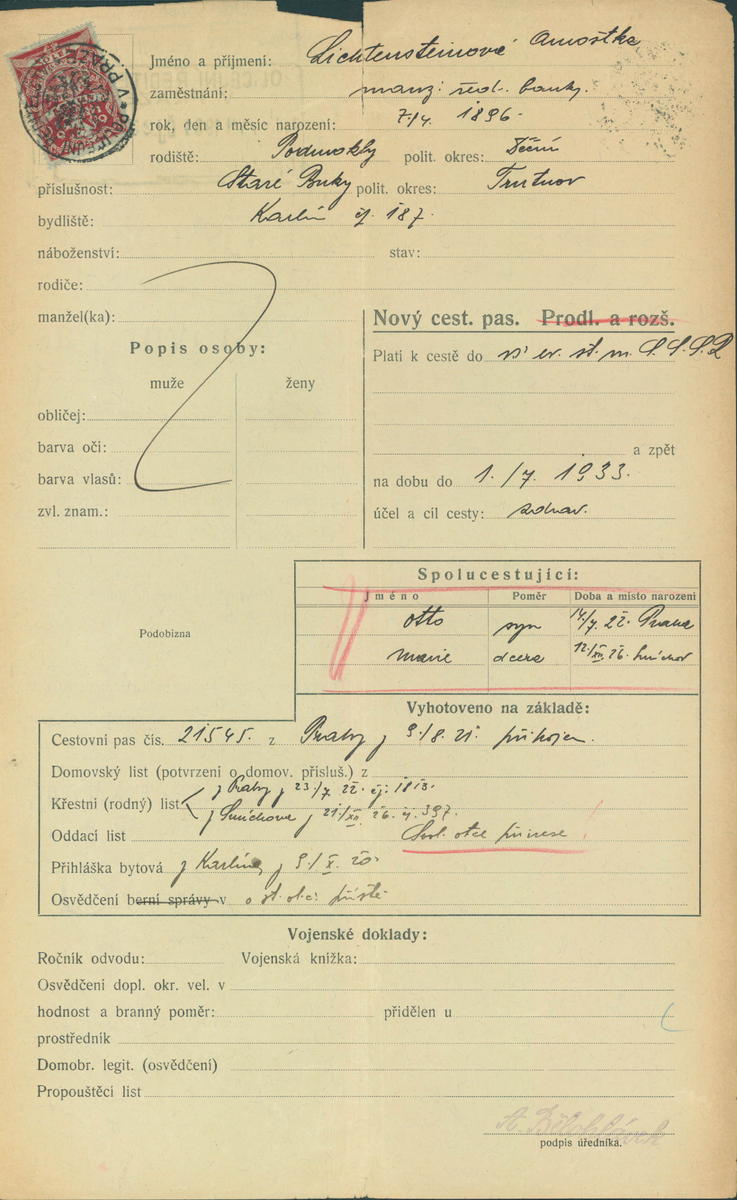 V PRAZE
Jméno a příjmení: Lichtensteinová Arnoštka
zaměstnání: manž. řed. banky.
rok, den a měsíc narození: 7/4. 1896.
rodiště: Podmokly polit. okres: Děčín
příslušnost: Staré Buky polit. okres: Trutnov
bydliště: Karlín čj. 187.
náboženství: stav:
rodiče:
manžel(ka):
Nový cest. pas. Prodl. a rozš.
Popis osoby:
Platí k cestě do vš. ev. st. m. S.S.S.R
muže ženy
obličej:
barva očí:
a zpět
barva vlasů:
na dobu do 1./7. 1933.
zvl. znam.:
účel a cíl cesty: zdrav.
Spolucestující:
Jméno Poměr Doba a místo narození
Otto syn 14/7. 22. Praha
Marie dcera 12/XII. 26. Smíchov
Podobizna
Vyhotoveno na základě:
Cestovní pas čís. 21545. z Prahy z 9./8. 21. připojen.
Domovský list (potvrzení o domov. přísluš.) z
z Prahy z 23/7. 22. čj. 1813.
Křestní (rodný) list
z Smíchova z 21/XII. 26. čj. 397.
Oddací list Svol. otce přinese!
Přihláška bytová z Karlína z 9./X. 20.
Osvědčení berní správy v o st. obč. příště
Vojenské doklady:
Ročník odvodu: Vojenská knížka:
Osvědčení dopl. okr. vel. v
hodnost a branný poměr: přidělen u
prostředník
Domobr. legit. (osvědčení)
Propouštěcí list
A. Bělohlávek
podpis úředníka.